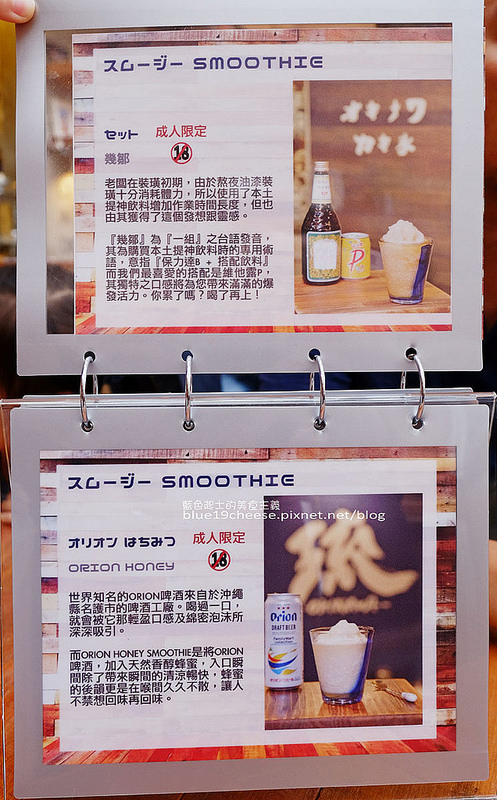 スムージー SMOOTHIE
セット 成人限定
幾鄒 18
老闆在裝璜初期，由於熬夜油漆裝
璜十分消耗體力，所以使用了本土
提神飲料增加作業時間長度，但也
由其獲得了這個發想跟靈感。
『幾鄒』為『一組』之台語發音，
其為購買本土提神飲料時的專用術
語，意指『保力達B + 搭配飲料』
而我們最喜愛的搭配是維他露P，
其獨特之口感將為您帶來滿滿的爆
發活力。你累了嗎？喝了再上！
オキナワ
P
スムージー SMOOTHIE
藍色起士的美食主義
blue19cheese.pixnet.net/blog
オリオン はちみつ 成人限定
ORION HONEY 18
世界知名的ORION啤酒來自於沖繩
縣名護市的啤酒工廠。喝過一口，
就會被它那輕盈口感及綿密泡沫所
深深吸引。
而ORION HONEY SMOOTHIE是將ORION
啤酒，加入天然香醇蜂蜜，入口瞬
間除了帶來瞬間的清涼暢快，蜂蜜
的後韻更是在喉間久久不散，讓人
不禁想回味再回味。
Orion
DRAFT BEER
FamilyMart